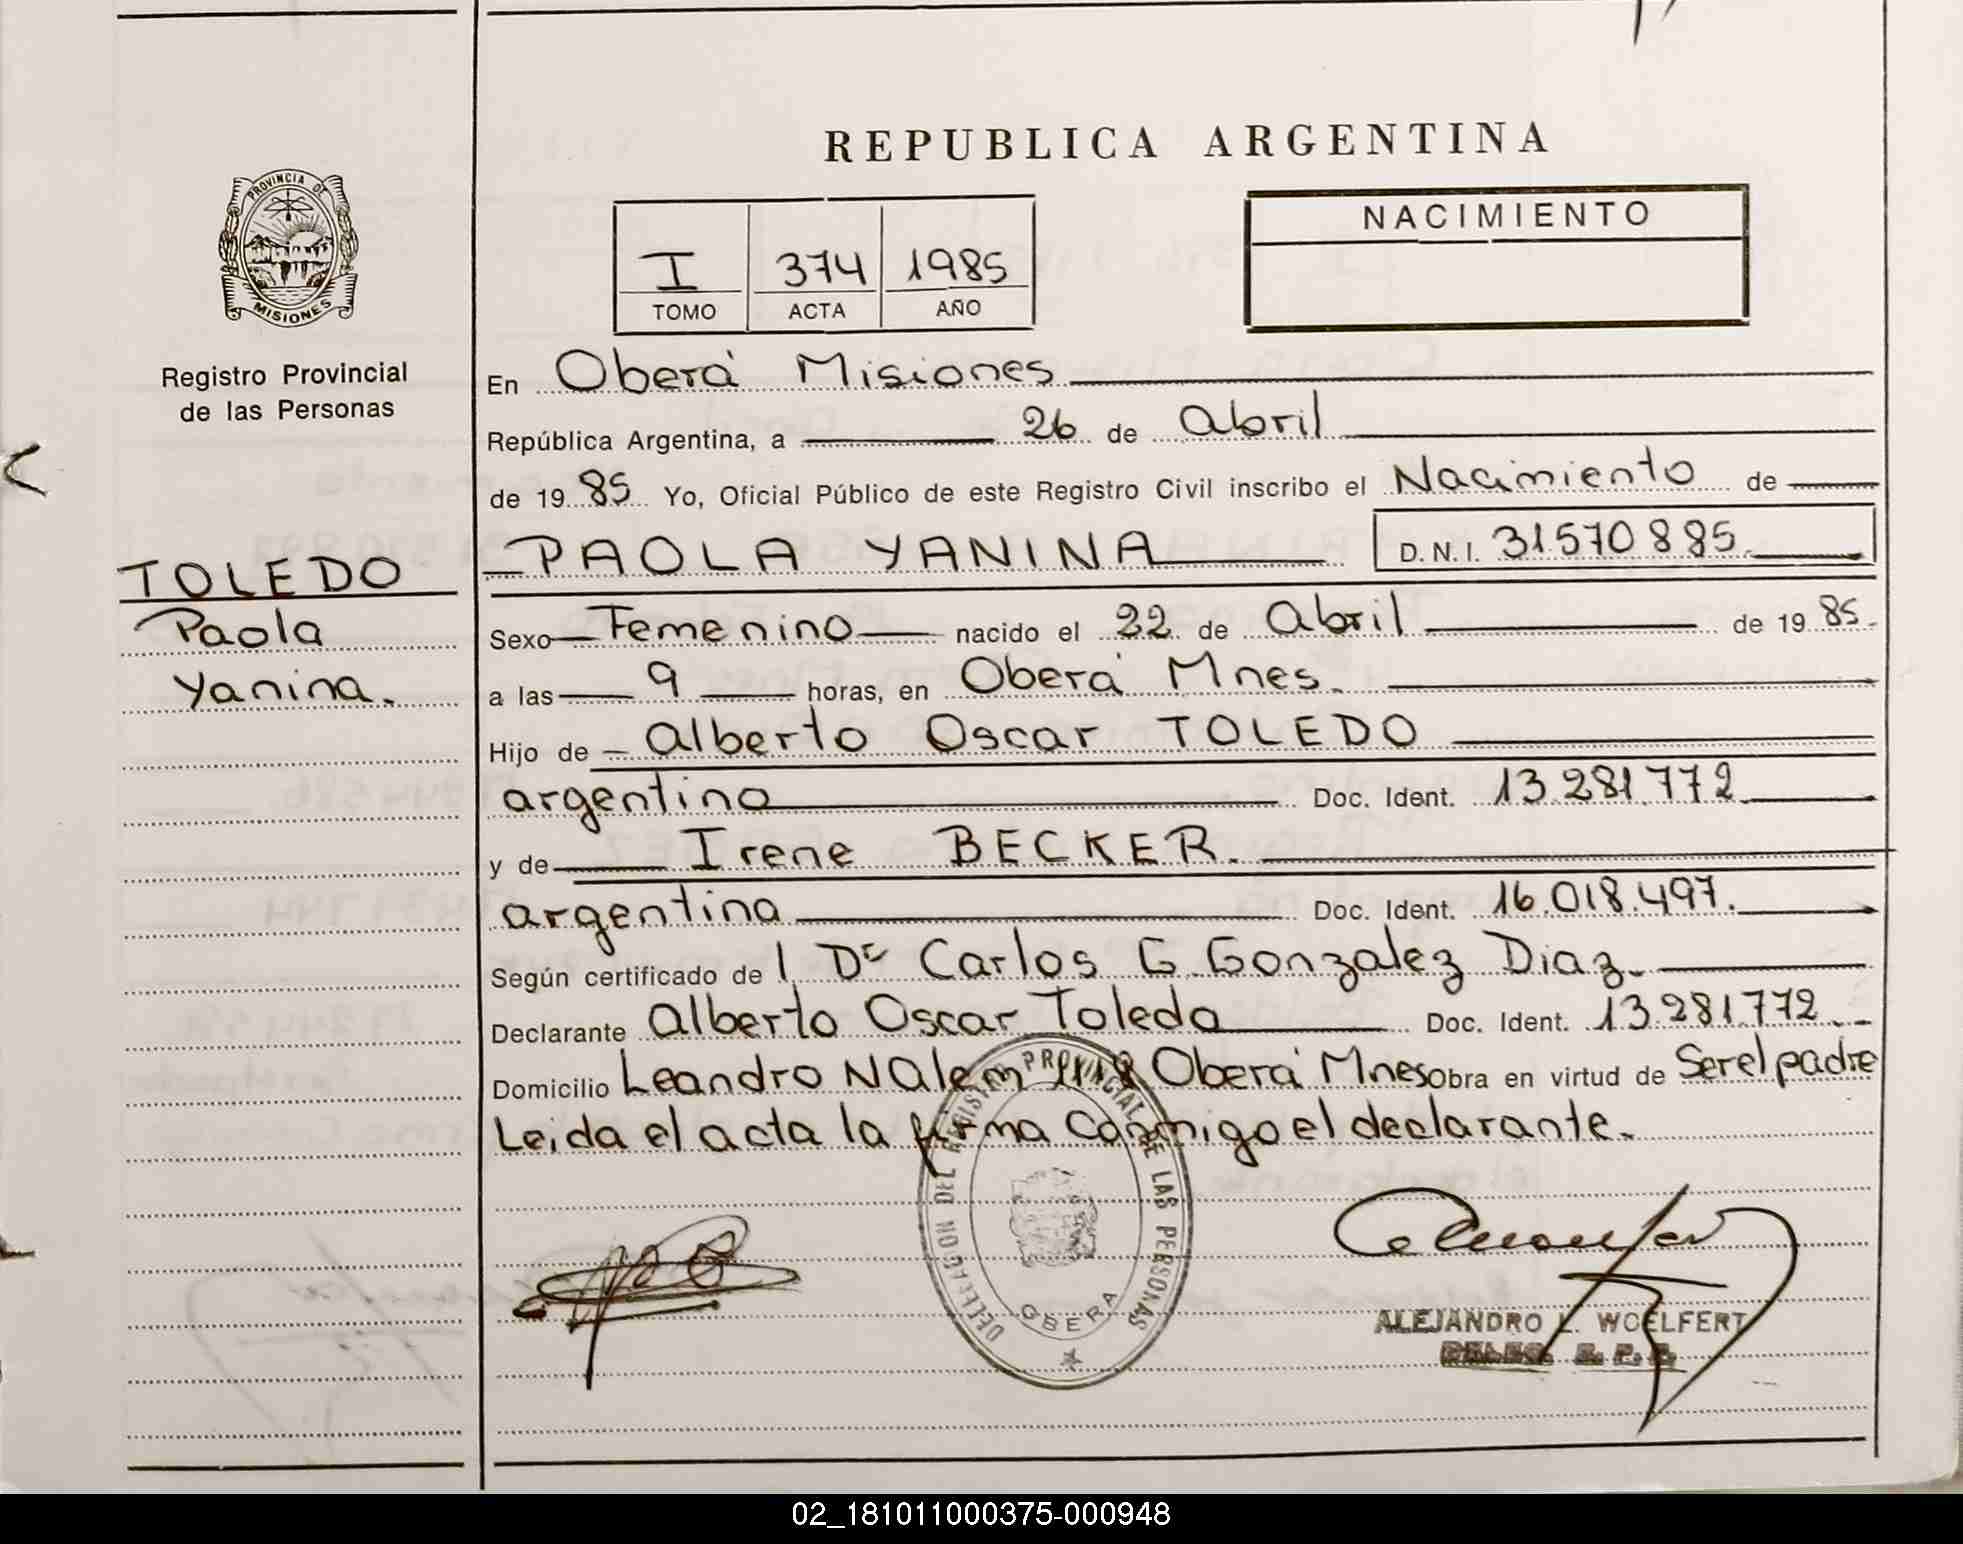 REPUBLICA ARGENTINA
PROVINCIA DE
MISIONES
Registro Provincial
de las Personas
I 374 1985
TOMO ACTA AÑO
NACIMIENTO
En Oberá Misiones
República Argentina, a 26 de Abril
de 19 85 Yo, Oficial Público de este Registro Civil inscribo el Nacimiento de
PAOLA YANINA D.N.I. 31570885
TOLEDO
Paola
Yanina.
Sexo Femenino nacido el 22 de Abril de 19 85
a las 9 horas, en Oberá Mnes.
Hijo de Alberto Oscar TOLEDO
argentino Doc. Ident. 13.281.772
y de Irene BECKER.
argentina Doc. Ident. 16.018.497.
Según certificado de l Dr Carlos G. Gonzalez Diaz.
Declarante Alberto Oscar Toledo Doc. Ident. 13.281.772
Domicilio Leandro N Alem Oberá Mnes obra en virtud de Ser el padre
Leida el acta la firma conmigo el declarante.
DELEGACION DEL REGISTRO PROVINCIAL DE LAS PERSONAS
OBERA
ALEJANDRO L. WOELFERT
02_181011000375-000948